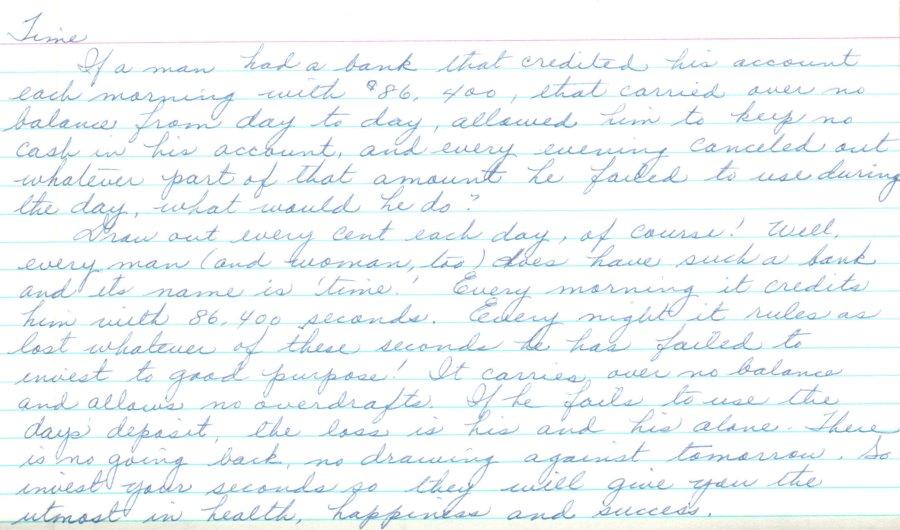 Time
If a man had a bank that credited his account
each morning with $86,400, that carried over no
balance from day to day, allowed him to keep no
cash in his account, and every evening canceled out
whatever part of that amount he failed to use during
the day, what would he do?
Draw out every cent each day, of course! Well,
every man (and woman, too) does have such a bank
and its name is 'time.' Every morning it credits
him with 86,400 seconds. Every night it rules as
lost whatever of these seconds he has failed to
invest to good purpose! It carries over no balance
and allows no overdrafts. If he fails to use the
days deposit, the loss is his and his alone. There
is no going back, no drawing against tomorrow. So
invest your seconds so they will give you the
utmost in health, happiness and success.